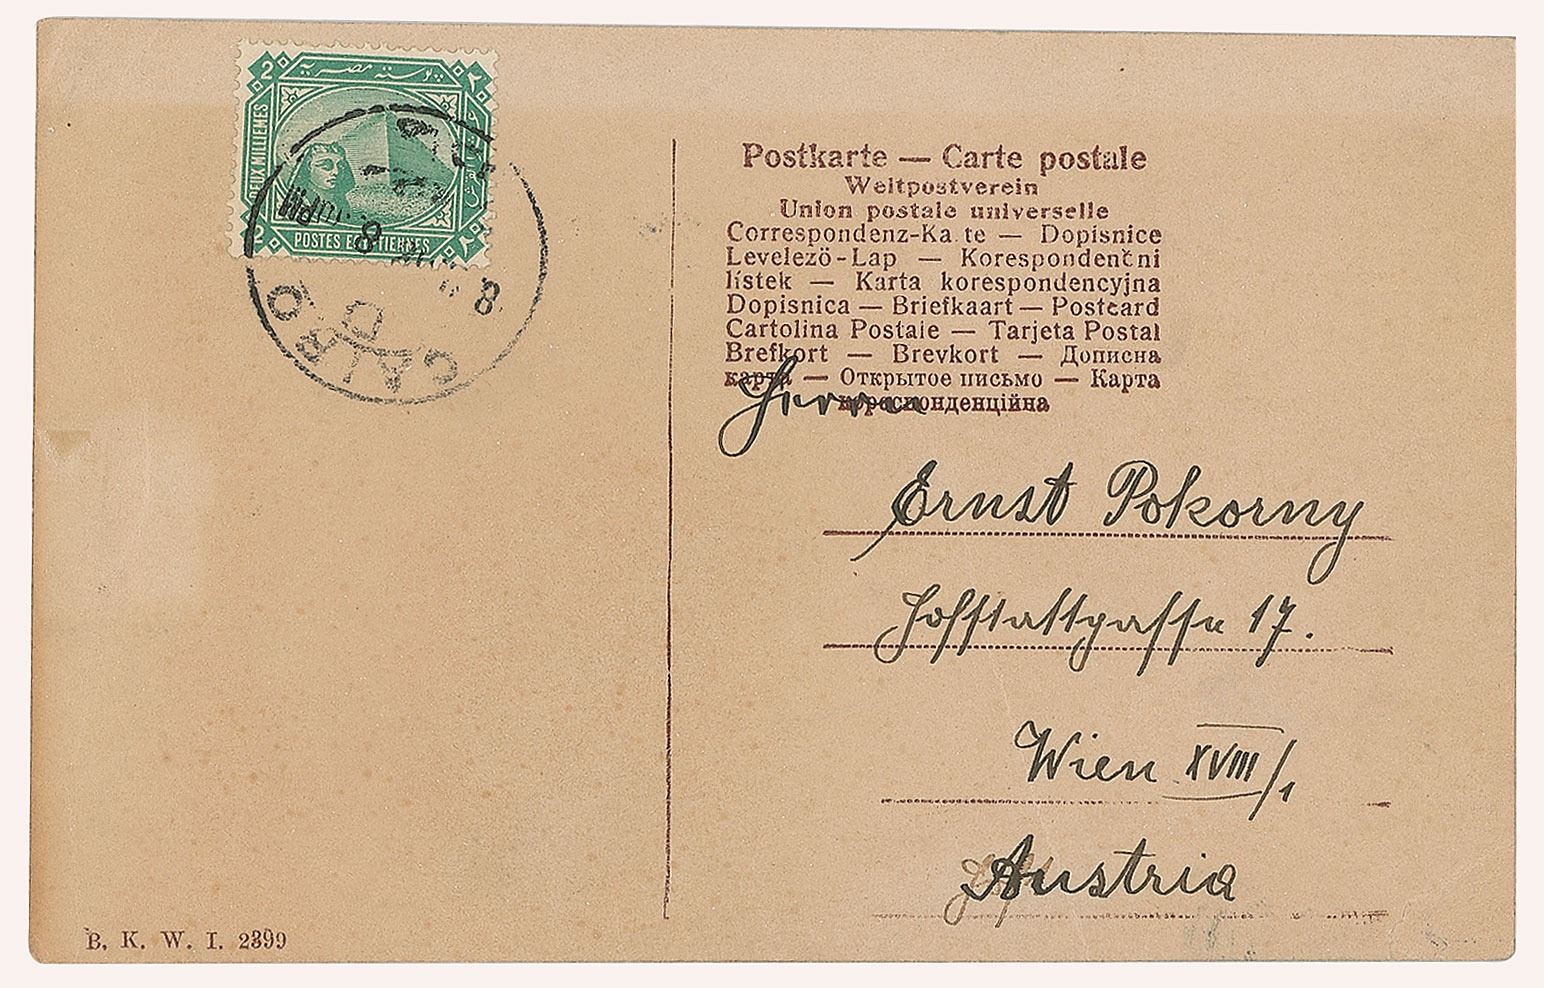 2 پوسته مصريه ٢
DEUX MILLIEMES
2 POSTES EGYPTIENNES ٢
PM
8
8
CAIRO
D
Postkarte — Carte postale
Weltpostverein
Union postale universelle
Correspondenz-Ka te — Dopisnice
Levelező-Lap — Korespondenční
lístek — Karta korespondencyjna
Dopisnica — Briefkaart — Postcard
Cartolina Postale — Tarjeta Postal
Brefkort — Brevkort — Дописна
карта — Открытое письмо — Карта
корреспонденційна
Herrn
Ernst Pokorny
Hofstattgasse 17.
Wien XVIII/1
Austria
B. K. W. I. 2399